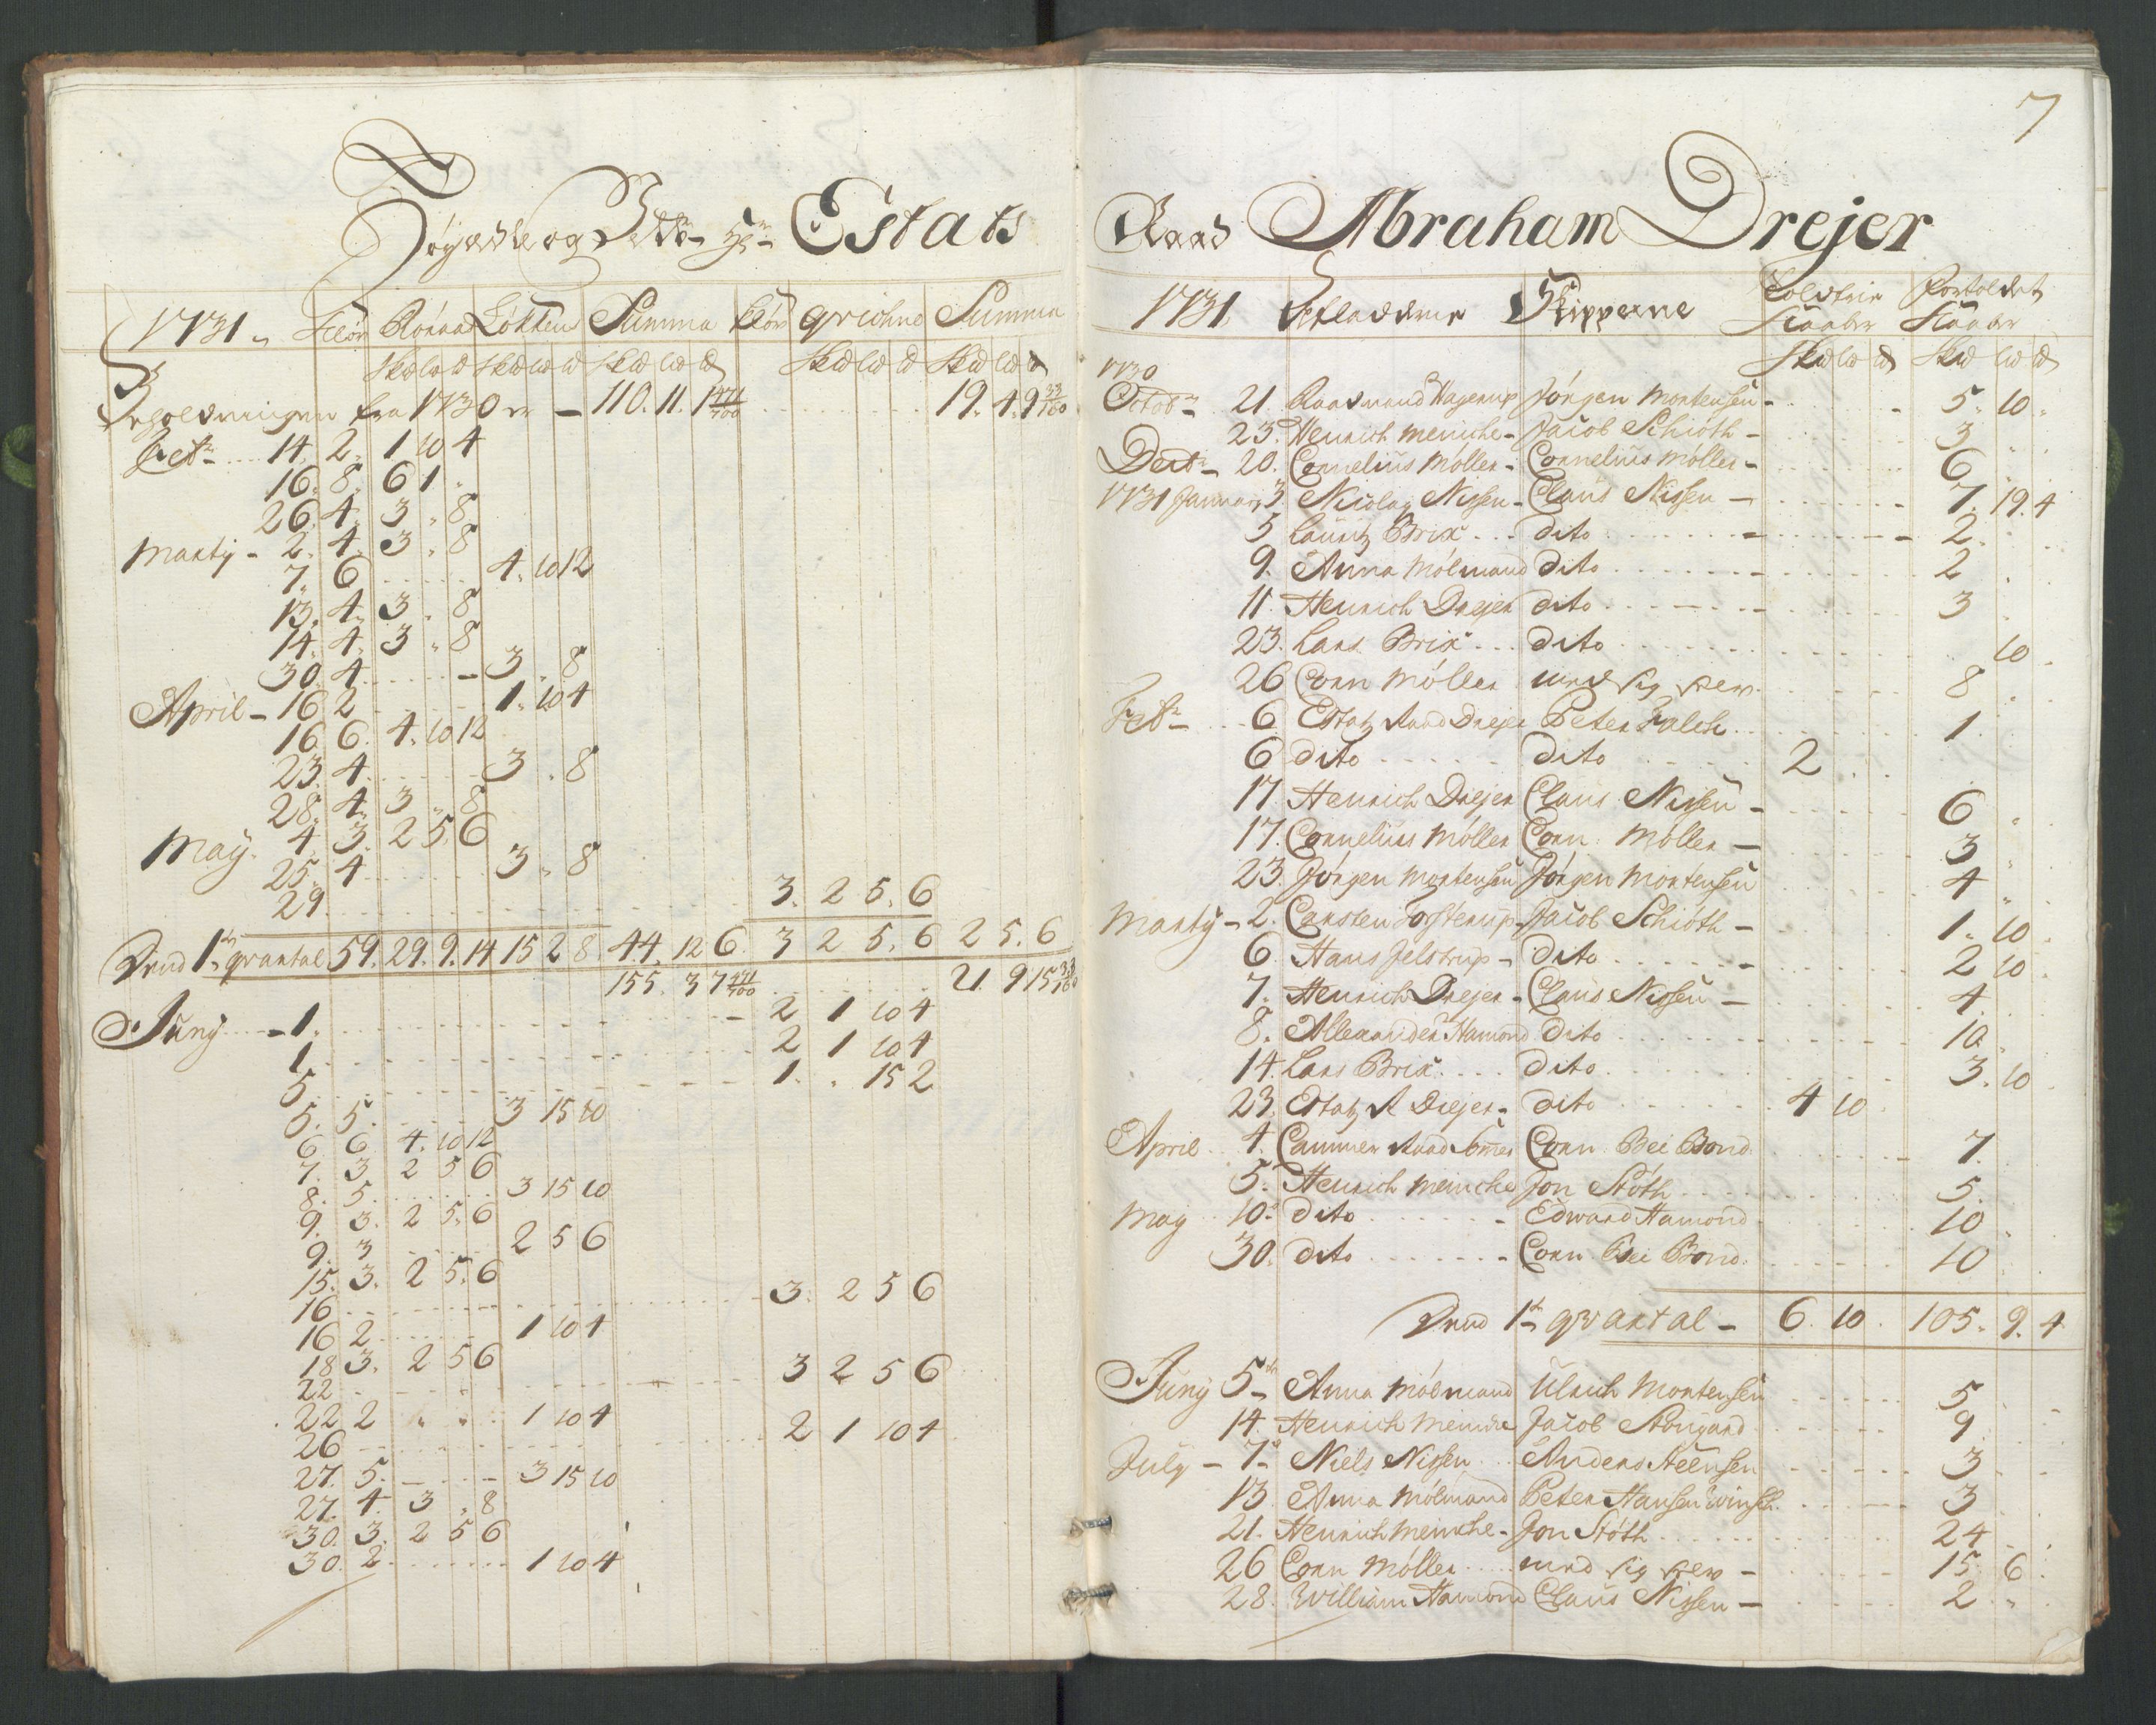 Estats
1731. Summa Summa
fra 1730 110. 11. 1 471/700 19. 4. 9 33/160
14. 2. 1 10 4
16. 8. 6 1 .
26. 4. 3 . 8
Marty - 2. 4. 3 . 8
7. 6 4. 10 12
13. 4. 3 . 8
14. 4. 3 . 8
30. 4 3 . 8
April - 16 2 1. 10 4
16 6. 4. 10 12
23. 4 3 . 8
28. 4. 3 . 8
May. 4. 3. 2 5. 6
25. 4 3 . 8
29. 3. 2 5. 6
1te qvartal 59. 29. 9. 14 15 2 8 44. 12 6. 3 2 5. 6 2 5. 6
155. 3 7 471/700 21. 9 15 33/160
Juny - 1. 2 1 10 4
1. 2 1 10 4
5. 1. . 15 2
5. 5. 3 15 10
6 6 4. 10 12
7. 3 2 5 6
8. 5. 3 15 10
9. 3. 2 5. 6
9. 3 2 5 6
15. 3. 2 5. 6
16 3. 2 5 6
16 2 1 10 4
18 3. 2 5 6
22 3 2 5 6
22 2 1 10 4
26 2 1 10 4
27. 5. 3 15 10
27. 4. 3 . 8
30. 3. 2 5 6
30. 2 1 10 4
7
Raad Abraham Drejer
1731. Skipperne
1730
Octobr 21. Raadmand Hagerup Jörgen Mortensen - 5. 10.
23. Henrich Meinche - Jacob Schiöth - 3
Decbr - 20. Cornelius Möller - Cornelius Möller - 6.
1731 January 3. Nicolay Nissen - Claus Nissen - 7. 19. 4
5 Lauritz Brix dito 2.
9. Anna Mölmand dito 2.
11. Henrich Drejer dito 3
23. Lars Brix dito 10.
26 Corn Möller med sig selv 8
Febr - 6. Estatz Raad Drejer Peter Falck 1.
6 dito dito 2
17. Henrich Drejer Claus Nissen - 6
17. Cornelius Möller Corn: Möller - 3
23. Jörgen Mortensen Jörgen Mortensen 4
Marty - 2. Carsten Jacob Schiöth - 1. 10
6. Hans Jelstrup - dito 2 10.
7. Henrich Drejer - Claus Nissen - 4.
8. Allexander Hamond dito 10.
14. Lars Brix dito 3. 10
23. Estatz R Drejer - dito 4 10
April 4. Cammer Raad Corn Bei Bond. 7.
5. Henrich Meinche Jon Stöth 5.
May 10. dito Edward Hamond 10
30. dito Corn Bei Bond 10
1te qvartal - 6. 10. 105. 9. 4
Juny 5te Anna Mölmand Ulrich Mortensen 5
14. Henrich Meinche Jacob 9.
July - 7. Niels Nissen Anders Steensen 3
13. Anna Mölmand Peter Hansen 3
21. Henrich Meinche - Jon Stöth 24
26 Corn Möller med sig selv - 15. 6.
28. William Hamond Claus Nissen - 2